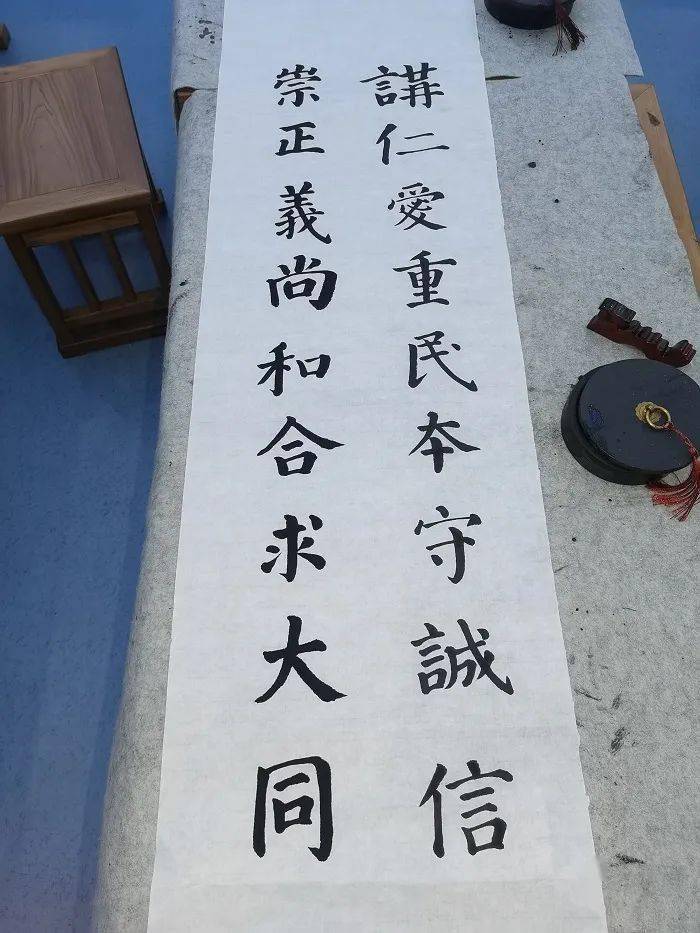 講仁愛重民本守誠信
崇正義尚和合求大同